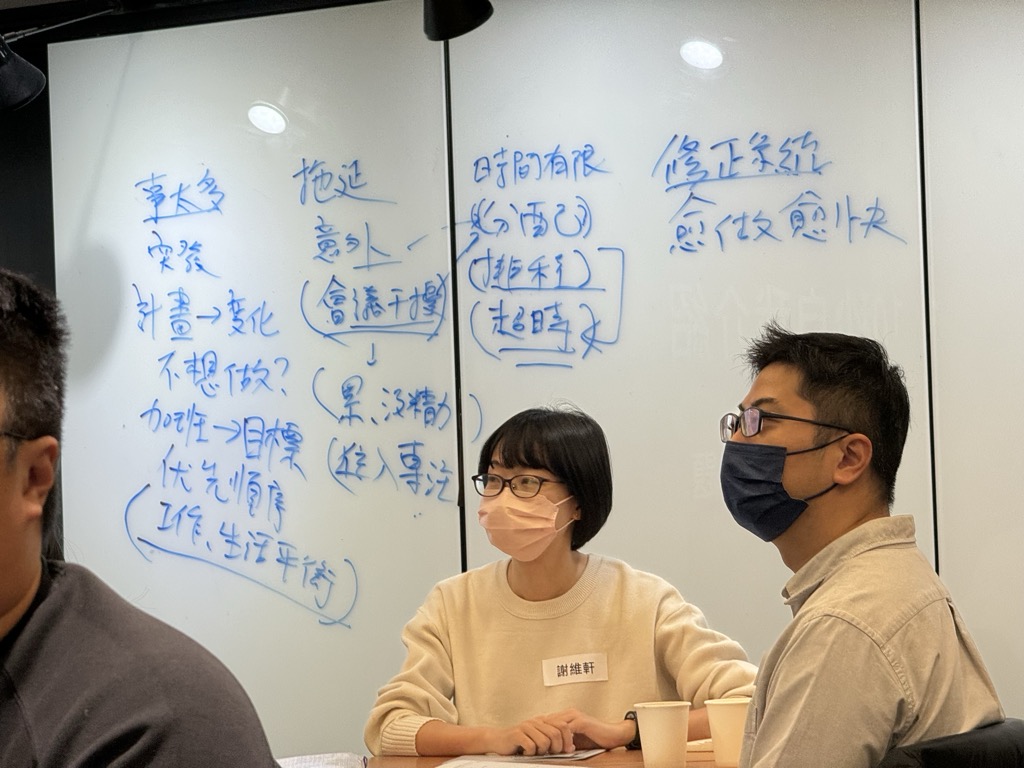 事太多
突發
計畫→変化
不想做?
加班→目標
优先順序
(工作、生活平衡)
拖延
意外
(會議干擾)
↓
(累、沒精力)
(進入專注
時間有限
(分配)
(排程)
(超時)
修正系統
愈做愈快
謝維軒